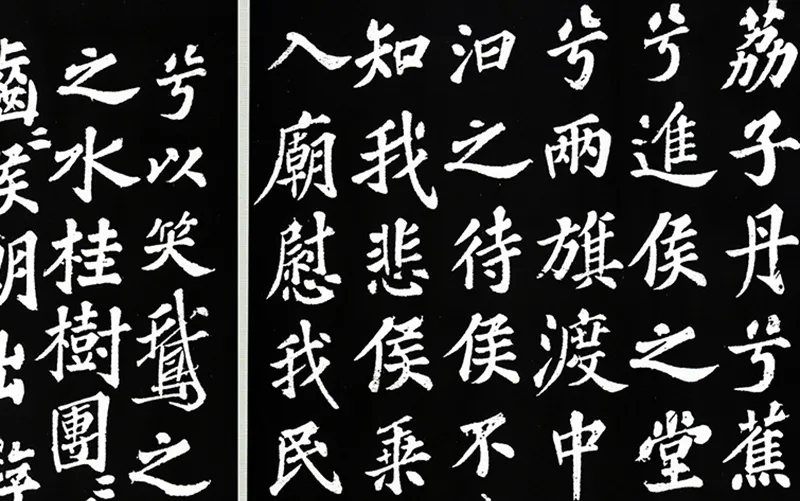 荔子丹兮蕉
兮進侯之堂
兮兩旗渡中
汩之待侯不
知我悲侯乗
入廟慰我民
兮以笑鵝之
之水桂樹團〻
齒〻侯朝出